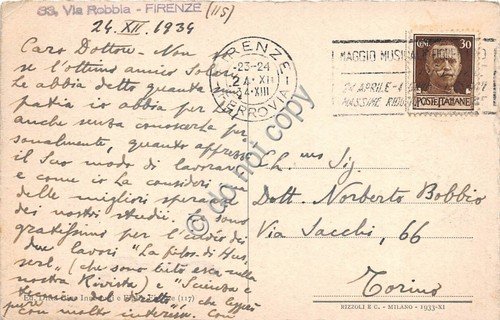 33, Via Robbia - FIRENZE (115)
24. XII. 1934
Caro Dottore - Non so
se l'ottimo amico Solari
Le abbia detto quanta sim-
patia io abbia per Lei
anche senza conoscerla per-
sonalmente, quanto apprezzi
il Suo modo di lavorare
e come io La consideri una
delle migliori speranze
dei nostri studii. Le sono
gratissimo per l'invio dei
due lavori "La filos. di Hus-
serl" (che sono lieto esca sulla
nostra Rivista) e "Scienza e
tecnica del diritto", che leggerò
pure con molto interesse. Con
FIRENZE
23-24
24 XII
34-XIII
FERROVIA
MAGGIO MUSICALE
APRILE -
MASSIME
CENT. 30
POSTE ITALIANE
Ch.mo Sig.
Dott. Norberto Bobbio
Via Sacchi, 66
Torino
(117)
RIZZOLI E C. - MILANO - 1933-XI
do not copy